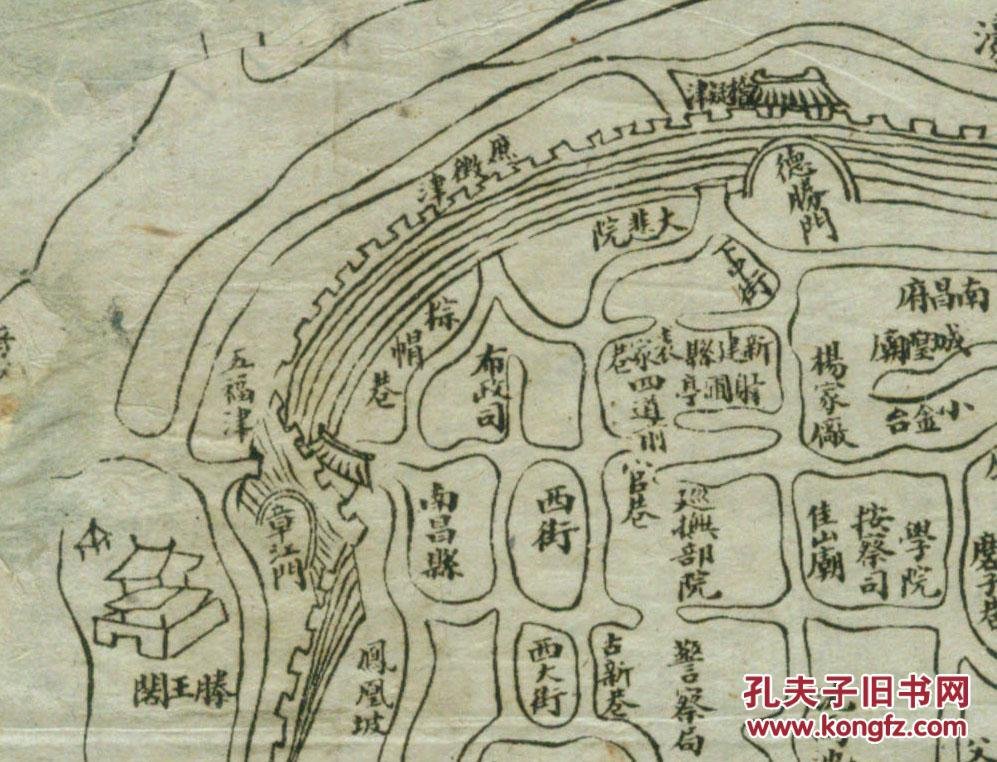 德勝門
大悲院
五福津
棕帽巷
布政司
新建縣
袁家巷
四道前
南昌府
城隍廟
小金台
楊家廠
章江門
南昌縣
西街
官巷
巡撫部院
佳山廟
按察司
學院
磨子巷
滕王閣
鳳凰坡
西大街
古新巷
警察局
孔夫子旧书网
www.kongfz.com